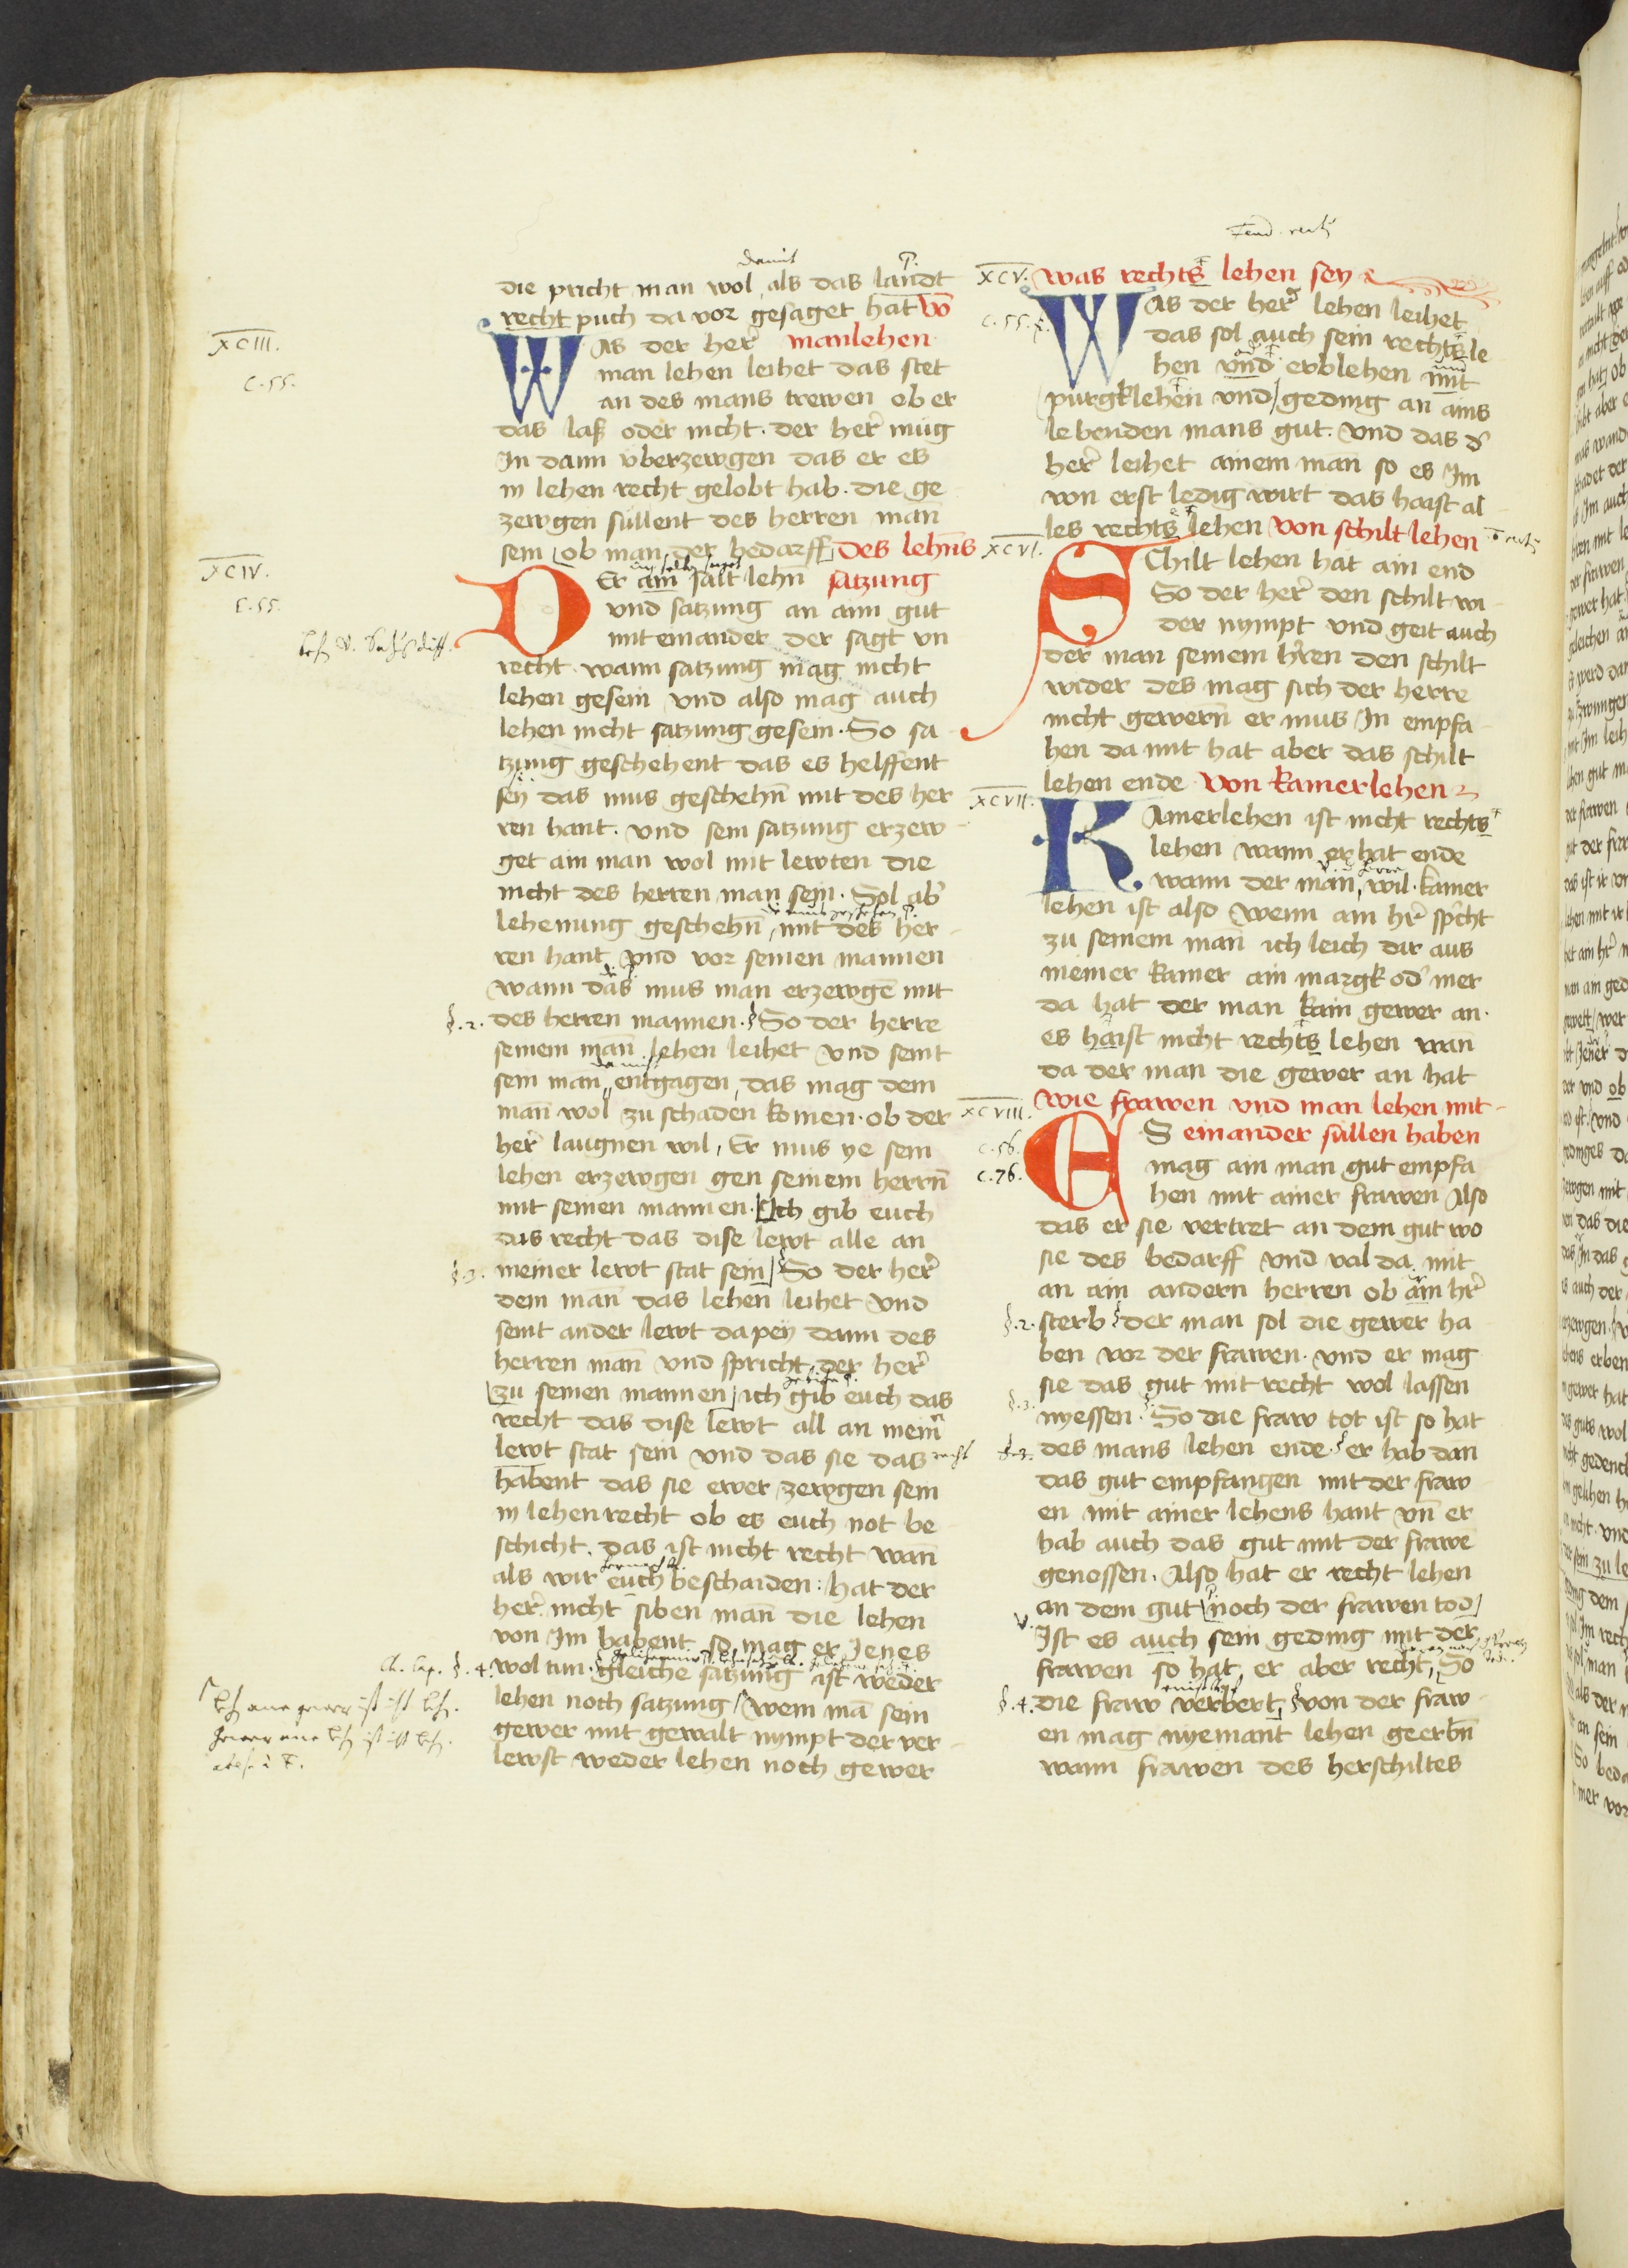 die pricht man wol als das landt
recht puch da vor gesaget hat võ
WAs der her̃ manlehen
man lehen leihet das stet
an des mans trewen ob er
das laß oder nicht. der her̃ mug
In dann vberzewgen das er es
in lehen recht gelobt hab. die ge
zewgen sullent des herren man
sein ob man der bedarff des lehñs
DEr ain salt lehñ satzung
vnd satzung an aim gut
mit einander der sagt vn
recht. wann satzung mag nicht
lehen gesein vnd also mag auch
lehen nicht satzung gesein. So sa
tzung geschehent das es helffent
sey das mus geschehñ mit des her
ren hant. vnd sein satzung erzew
get ain man wol mit lewten die
nicht des herren man sein. Sol ab̓
lehenung geschehñ mit des her
ren hant vnd vor seinen mannen
wann das mus man erzewgẽ mit
§.2. des herren mannen. So der herre
seinem man lehen leihet vnd seint
sein man entgagen, das mag dem
man wol zu schaden komen. ob der
her̃ laugnen wil, Er mus ye sein
lehen erzewgen gen seinem herrñ
mit seinen mannen. Ich gib euch
das recht das dise lewt alle an
§.3. meiner lewt stat sein So der her̃
dem man das lehen leihet vnd
seint ander lewt da pey dann des
herren man vnd spricht der her̃
zu seinen mannen ich gib euch das
recht das dise lewt all an mein̓
lewt stat sein vnd das sie das recht
habent das sie ewer zewgen sein
in lehenrecht ob es euch not be
schicht. das ist nicht recht wañ
als wir euch beschaiden: hat der
her̃ nicht siben man die lehen
von Im habent so mag er Jenes
§.4. wol tun. gleiche satzung ist weder
lehen noch satzung wem mã sein
gewer mit gewalt nympt der ver
lewst weder lehen noch gewer
XCIII.
c.55.
XCIV.
c.55.
XCV. was rechts lehen sey
WAs der her̃ lehen leihet
das sol auch sein rechts le
hen vnd erblehen mit
purgklehen vnd geding an ains
lebenden mans gut. vnd das d̓
her̃ leihet ainem man so es Im
von erst ledig wirt das haist al
les rechts lehen von schilt lehen
XCVI. SChilt lehen hat ain end
So der her̃ den schilt wi
der nympt vnd geit auch
der man seinem hren den schilt
wider des mag sich der herre
nicht gewern̄ er mus In empfa
hen da mit hat aber das schilt
lehen ende von kamerlehen
XCVII. KAmerlehen ist nicht rechts
lehen wann er hat ende
wann der man wil. kamer
lehen ist also wenn ain hr̃ sp̃cht
zu seinem man ich leich dir aus
meiner kamer ain margk od̓ mer
da hat der man kain gewer an.
es haist nicht rechts lehen wan
da der man die gewer an hat
XCVIII. wie frawen vnd man lehen mit
ES einander sullen haben
mag ain man gut empfa
hen mit ainer frawen Also
das er sie vertret an dem gut wo
sie des bedarff vnd val da mit
an ain andern herren ob ain hr̃
§.2. sterb der man sol die gewer ha
ben vor der frawen. vnd er mag
sie das gut mit recht wol lassen
nyessen. So die fraw tot ist so hat
§.3. des mans lehen ende. er hab dan
das gut empfangen mit der fraw
en mit ainer lehens hant vñ er
hab auch das gut mit der frawẽ
genossen. Also hat er recht lehen
an dem gut noch der frawen tod
Ist es auch sein geding mit der
frawen so hat er aber recht, So
§.4. die fraw verbert, von der fraw
en mag nyemant lehen geerbñ
wann frawen des herschiltes
c.56.
c.76.